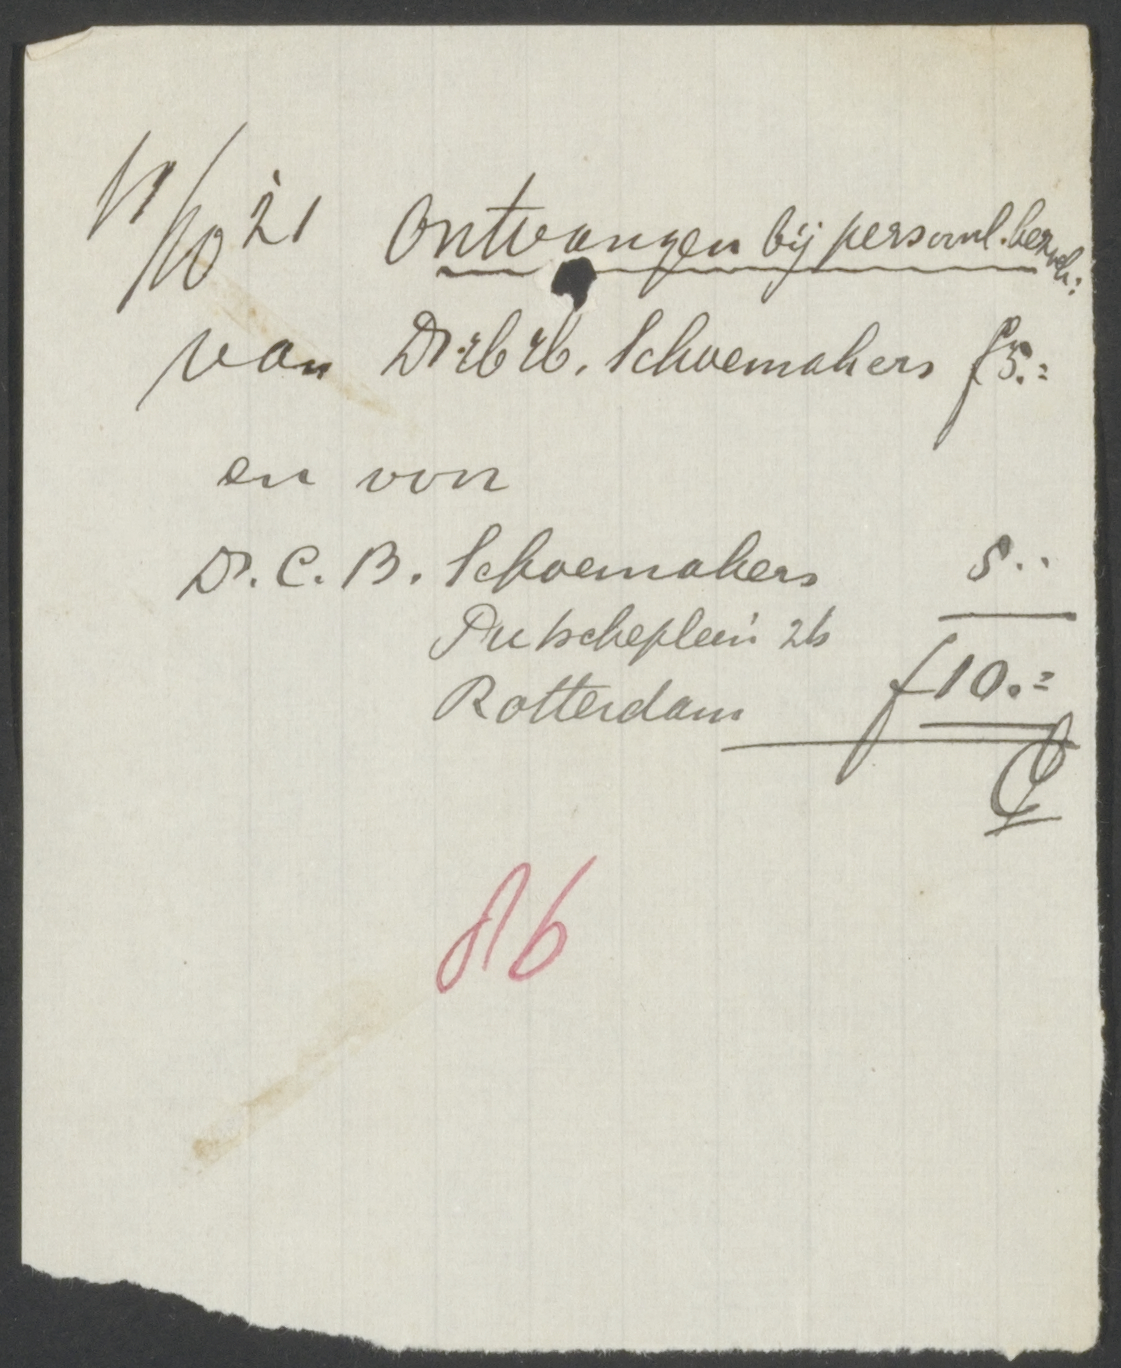 11/10 '21 Ontvangen bij persoonl. bezoek:
van Dr. Schoemakers f 5.=
en von
Dr. C. B. Schoemakers 5..
Putscheplein 2b
Rotterdam f 10.=
86